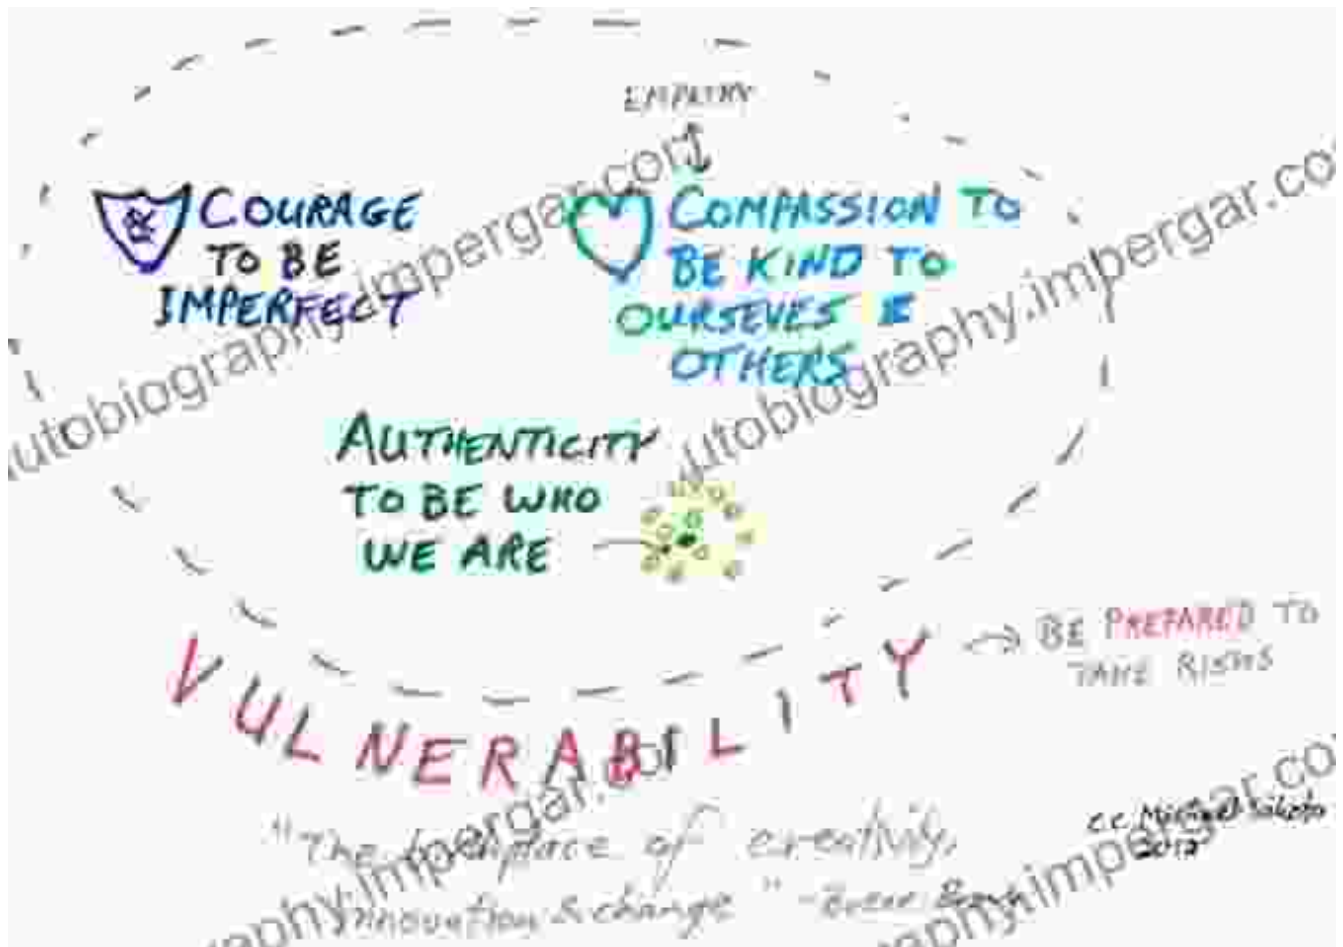 EMPATHY
COURAGE
TO BE
IMPERFECT
COMPASSION TO
BE KIND TO
OURSEVES &
OTHERS
AUTHENTICITY
TO BE WHO
WE ARE
VULNERABILITY
BE PREPARED TO
TAKE RISKS
"The birthplace of creativity,
innovation & change" - Brene Brown
cc Michael
2012
autobiography.impergar.com
autobiography.impergar.com